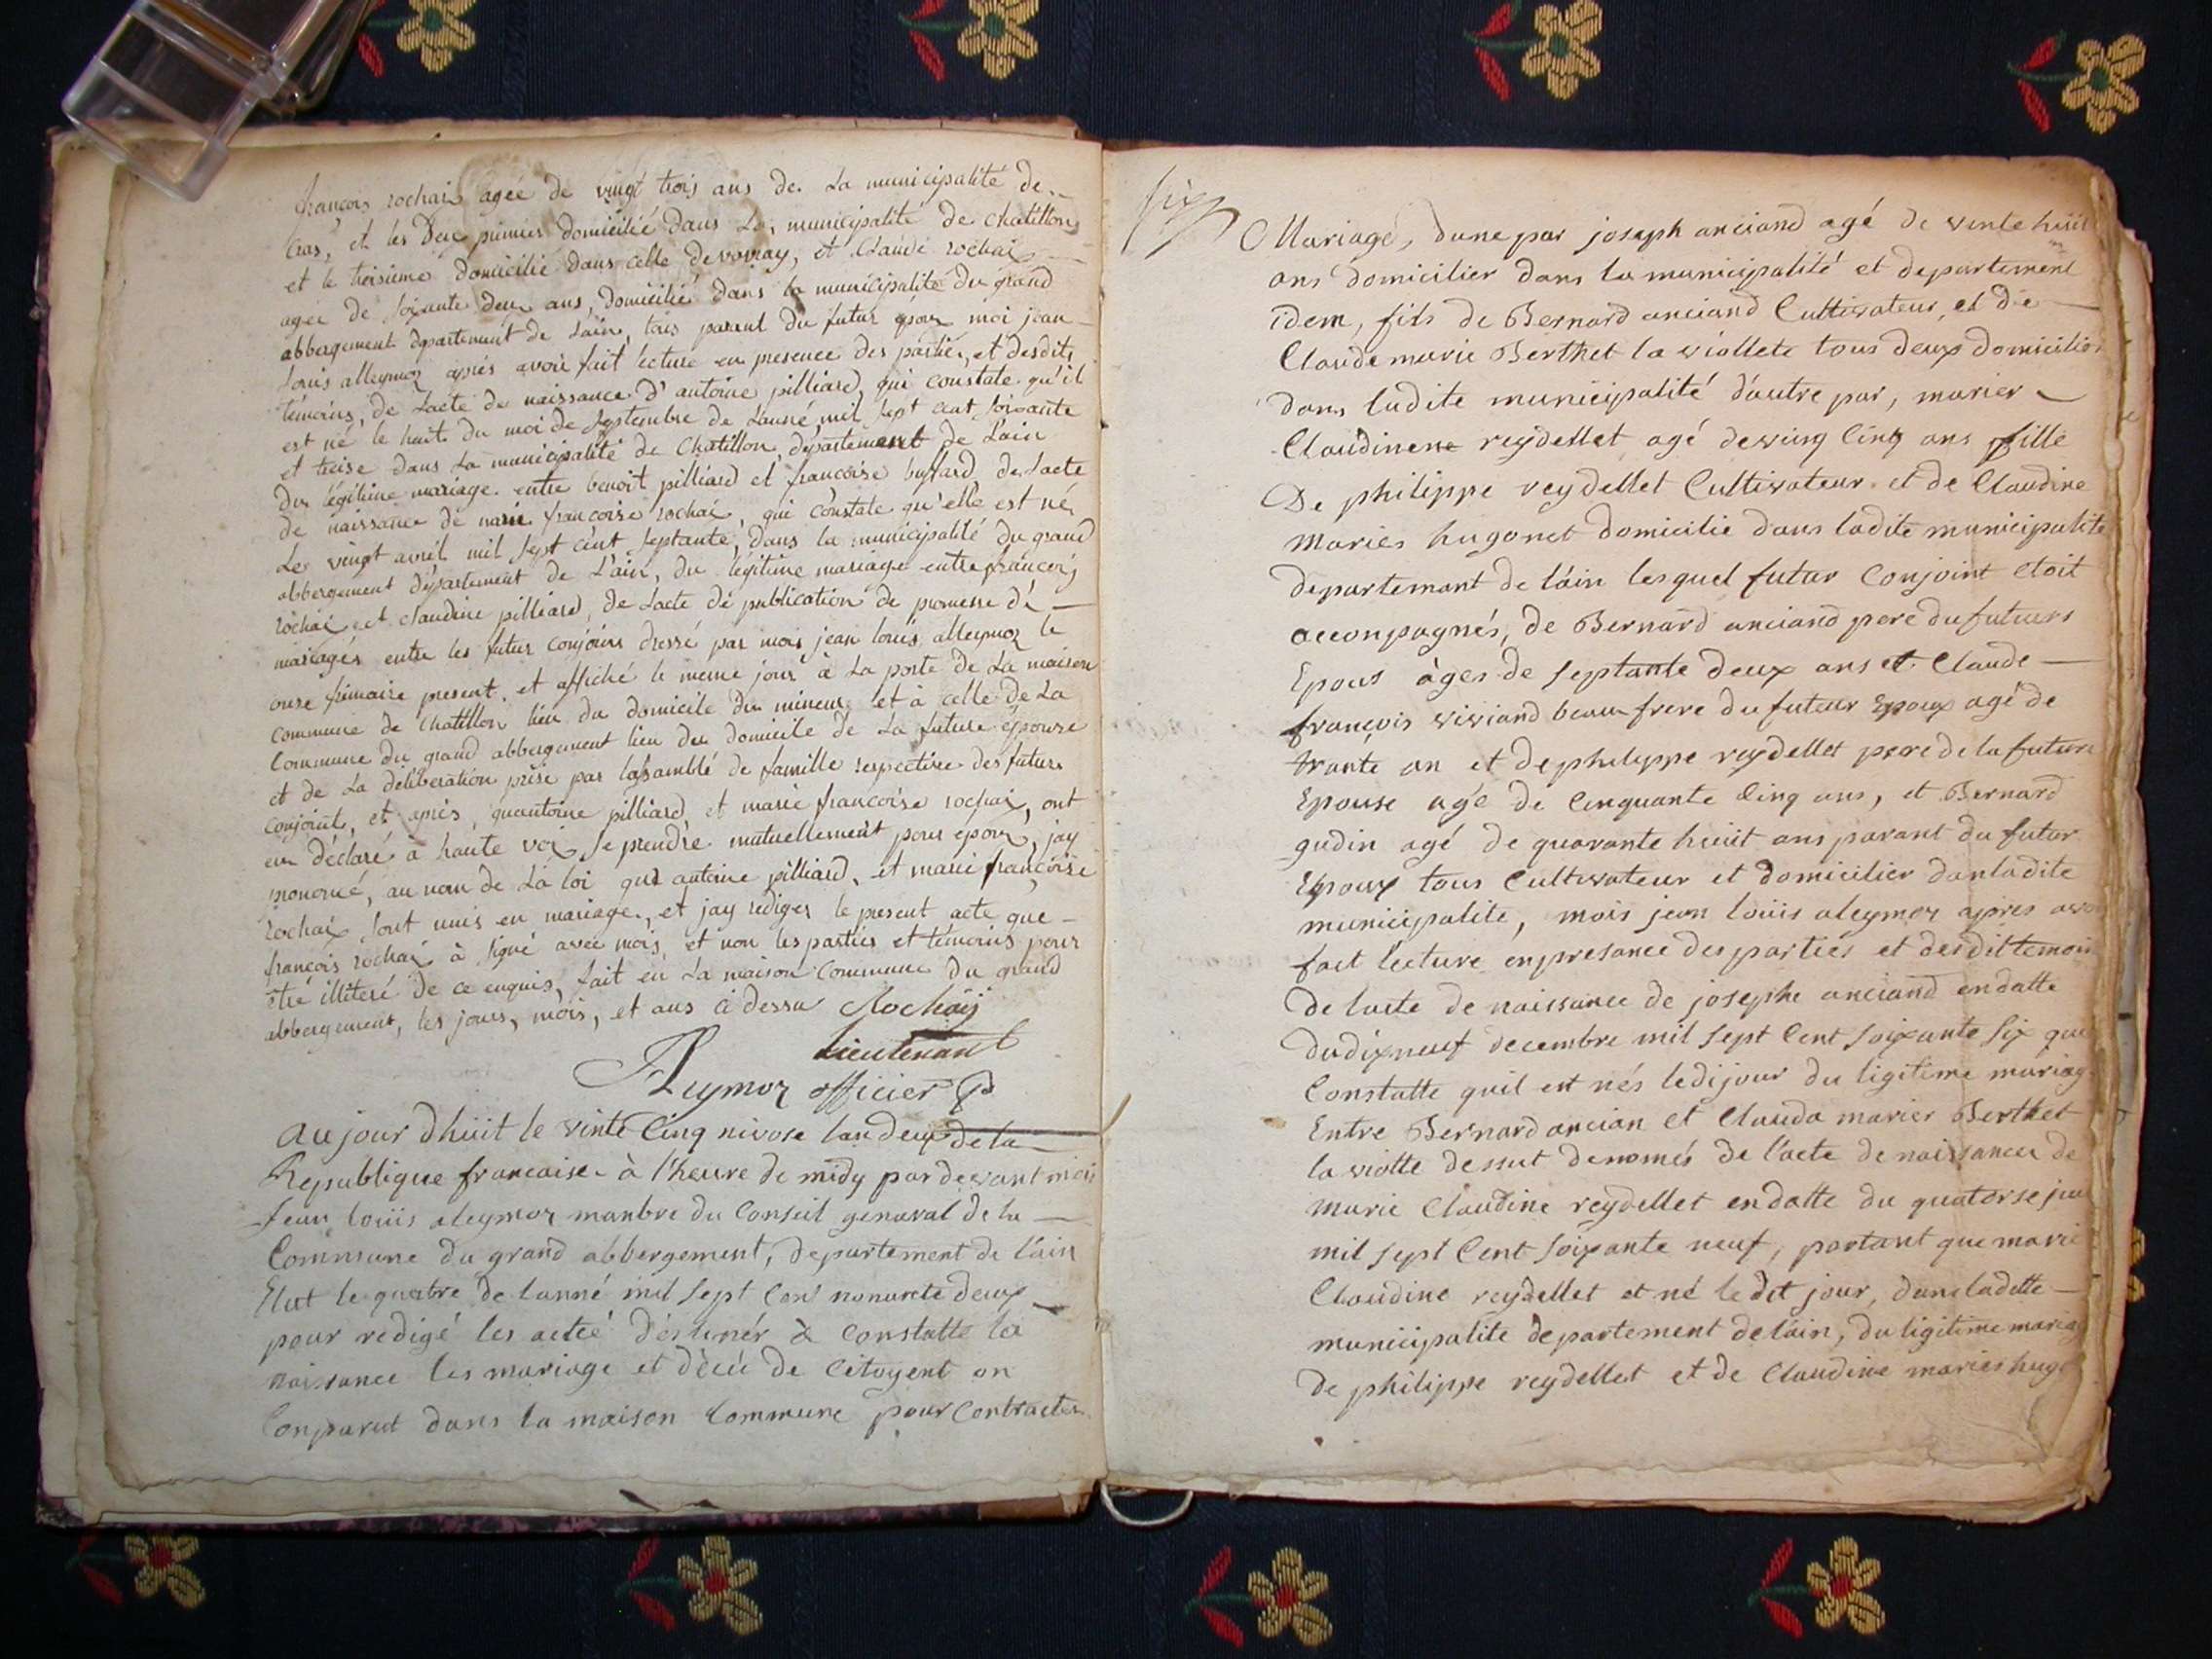 françois rochaix agée de vingt trois ans de La municipalité de
bras, et les Deux premiers domicilié dans La municipalité de chatillon
et le troisieme domicilié dans celle devovray, et Claude rochaix
agée de soixante deux ans, domicilié dans la municipalité du grand
abbergement departement de Lain, tous parent du futur epoux moi jean
Louis alleymoz apiés avoir fait lecture en presence des parties, et desdits
témoins, de Lacte de naissance d'antoine pilliard, qui constate qu'il
est né le huit du moi de septembre de L'auné mil sept cent soixante
et treise dans La municipalité de Chatillon, departement de L'ain
du légitime mariage entre benoit pilliard et francoise buffard, de Lacte
de naissance de marie francoise rochaix, qui constate qu'elle est né,
Le vingt avril mil sept cent septante, dans la municipalité du grand
abbergement département de L'ain, du légitime mariage entre françois
rochaix et claudine pilliard, de Lacte de publication de promesse de
mariages entre les futur conjoins dressé par moi jean louis alleymoz le
onze frimaire present, et affiché le meme jour à La porte de La maison
commune de Chatillon lieu du domicile du mineur, et à celle de La
Commune du grand abbergement lieu du domicile de La future épouse
et de La déliberation prise par lassamblé de famille respective des futurs
conjoint, et apiés, quantoine pilliard, et marie francoise rochaix, ont
eu déclaré à haute voix se prendre mutuellement pour epoux, jay
prononcé, au nom de La loi que antoine pilliard, et marie françoise
rochaix, sont unis en mariage, et jay rediger le present acte que
françois rochaix à signé avec mois, et non les parties et témoins pour
étre illiteré de ce enquis, fait en La maison commune du grand
abbergement, les jours, mois, et ans ci dessu Rochaij
Lieutenant
Aleymoz officier P
au jour dhuit le vinte Cinq nivose lan deux de la
Republique francaise à l'heure de midy par devant mois
jean loüis aleymoz manbre du Conseil genaral de la
Commune du grand abbergement, departement de l'ain
Elut le quatre de lanné mil sept Cent nonante deux
pour redigé les acteé déstinér à Constatte la
naissance les mariage et décé de Citoyent on
Conparut dans la maison Commune pour Contracter
six
Mariage, dune par joseph anciand agé de vinte huit
ans domicilier dans la municipalité et departement
idem, fils de Bernard anciand Cultivateur, et de
Claudemarie Berthet la viollete tous deux domicilier
dans ladite municipalité d'autre par, marier
Claudinene reydellet agé deving Cinq ans fille
De philippe reydellet Cultivateur et de Claudine
maries hugonet domicilie dans ladite municipalite
departemant de l'ain lesquel futur Conjoint etoit
acconpagnés, de Bernard anciand pere du futurs
Epous àges de septante deux ans et Claude
françois viviand beau frere du futeur Epoux agé de
trante an et de philippe reydellet pere de la future
Epouse agé de Cinquante Cinq ans, et Bernard
gudin agé de quarante huit ans parant du futur
Epoux tous Cultivateur et domicilier dan ladite
municipalite, mois jean loüis aleymoz apres avo
fait lecture enpresance des parties et desdit temoin
de lacte de naissance de josephe anciand endatte
dudixneuf decembre mil sept Cent soixante six que
Constatte quil est nés ledijour du ligitime mariag
Entre Bernard ancian et Claude marier Berthet
la violtte dessut denomés de l'acte de naissance de
marie Claudine reydellet endatte du quatorse jui
mil sept Cent soixante neuf, portant que marie
Claudine reydellet et né le dit jour, dans ladette
municipalite departement de l'ain, du ligitime maria
De philippe reydellet et de Claudine maries hugo